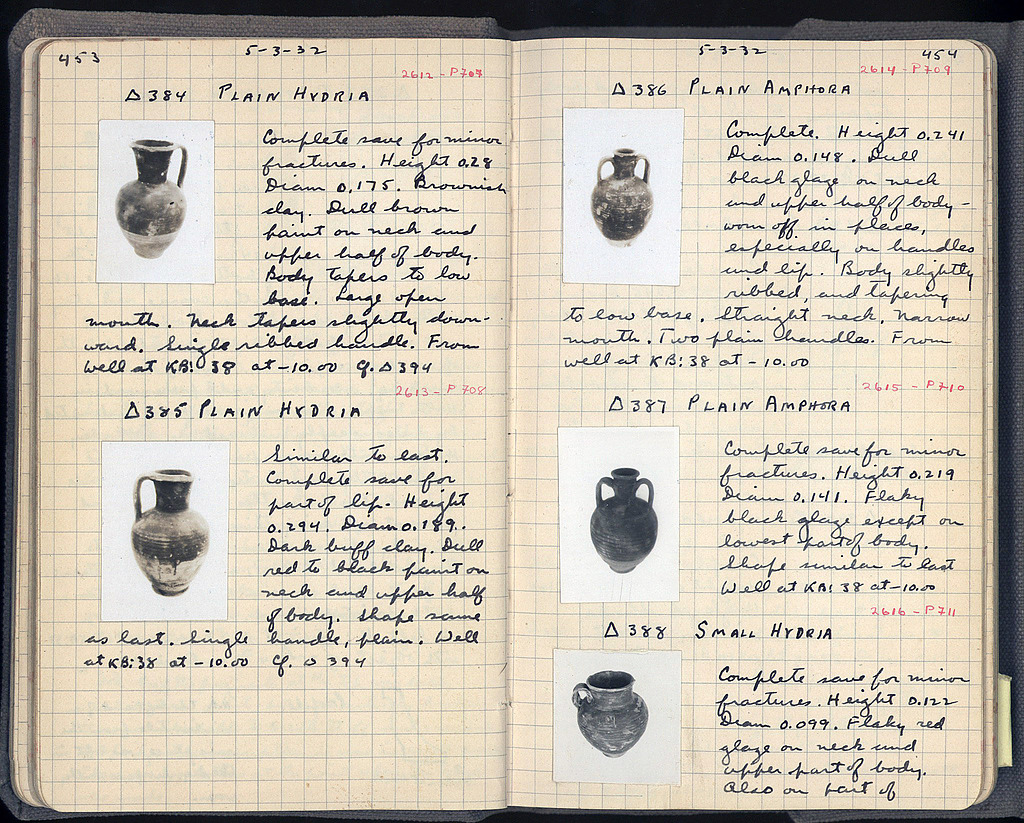 453
5-3-32
2612-P707
Δ384 PLAIN HYDRIA
Complete save for minor
fractures. Height 0.28
Diam 0.175. Brownish
clay. Dull brown
paint on neck and
upper half of body.
Body tapers to low
base. Large open
mouth. Neck tapers slightly down-
ward. Single ribbed handle. From
well at KB:38 at -10.00 cf. Δ394
2613-P708
Δ385 PLAIN HYDRIA
Similar to last.
Complete save for
part of lip. Height
0.294. Diam 0.189.
Dark buff clay. Dull
red to black paint on
neck and upper half
of body. Shape same
as last. Single handle, plain. Well
at KB:38 at -10.00 cf. Δ394
5-3-32
454
2614-P709
Δ386 PLAIN AMPHORA
Complete. Height 0.241
Diam 0.148. Dull
black glaze on neck
and upper half of body -
worn off in places,
especially on handles
and lip. Body slightly
ribbed, and tapering
to low base. Straight neck. Narrow
mouth. Two plain handles. From
well at KB:38 at -10.00
2615-P710
Δ387 PLAIN AMPHORA
Complete save for minor
fractures. Height 0.219
Diam 0.141. Flaky
black glaze except on
lowest part of body.
Shape similar to last
Well at KB:38 at -10.00
2616-P711
Δ388 SMALL HYDRIA
Complete save for minor
fractures. Height 0.122
Diam 0.099. Flaky red
glaze on neck and
upper part of body.
Also on part of